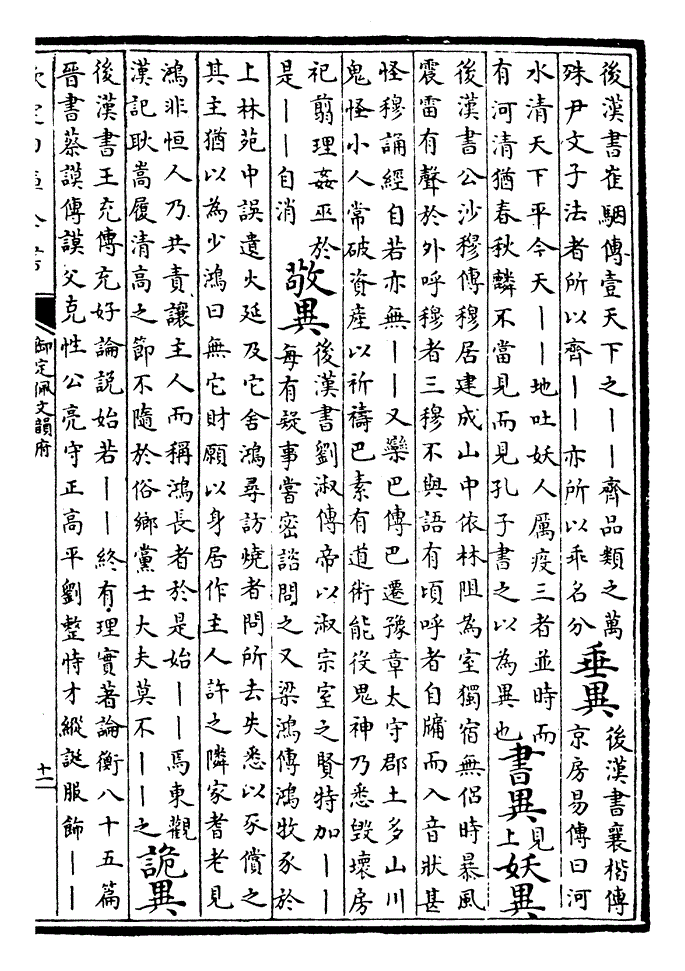 後漢書崔駰傳壹天下之||齊品類之萬
殊尹文子法者所以齊||亦所以乖名分
垂異
後漢書襄楷傳
京房易傳曰河
水清天下平今天||地吐妖人厲疫三者並時而
有河清猶春秋麟不當見而見孔子書之以為異也
書異
見上
妖異
後漢書公沙穆傳穆居建成山中依林阻為室獨宿無侶時暴風
震雷有聲於外呼穆者三穆不與語有頃呼者自牖而入音狀甚
怪穆誦經自若亦無||又欒巴傳巴遷豫章太守郡土多山川
鬼怪小人常破資產以祈禱巴素有道術能役鬼神乃悉毀壞房
祀翦理姦巫於
是||自消
敬異
後漢書劉淑傳帝以淑宗室之賢特加||
每有疑事嘗密諮問之又梁鴻傳鴻牧豕於
上林苑中誤遺火延及它舍鴻尋訪燒者問所去失悉以豕償之
其主猶以為少鴻曰無它財願以身居作主人許之隣家耆老見
鴻非恒人乃共責讓主人而稱鴻長者於是始||焉東觀
漢記耿嵩履清高之節不隨於俗鄉黨士大夫莫不||之
詭異
後漢書王充傳充好論說始若||終有理實著論衡八十五篇
晉書蔡謨傳謨父克性公亮守正高平劉整恃才縱誕服飾||
欽定四庫全書
御定佩文韻府
十一